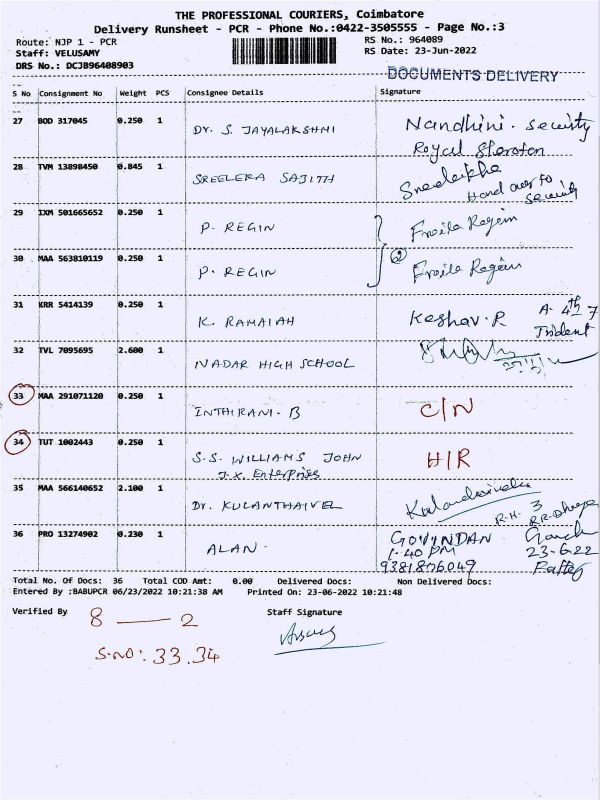 THE PROFESSIONAL COURIERS, Coimbatore
Delivery Runsheet - PCR - Phone No.:0422-3505555 - Page No.:3
Route: NJP 1 - PCR
RS No.: 964089
Staff: VELUSAMY
RS Date: 23-Jun-2022
DRS No.: DCJB96408903
DOCUMENTS DELIVERY
S No Consignment No Weight PCS Consignee Details Signature
27 BOD 317045 0.250 1 Dr. S. JAYALAKSHNI Nandhini. Security
Royal
28 TVM 13898450 0.845 1 SREELEKA SAJITH
Hand over to
Security
29 IXM 501665652 0.250 1 P. REGIN
30 MAA 563810119 0.250 1 P. REGIN
31 KRR 5414139 0.250 1 K. RAMAIAH Keshav.R A-4th 7
Trident
32 TVL 7095695 2.600 1 NADAR HIGH SCHOOL
33 MAA 291071120 0.250 1 INTHIRANI. B C/N
34 TUT 1002443 0.250 1 S.S. WILLIAMS JOHN H/R
J.X. Enterprises
35 MAA 566140652 2.100 1 Dr. KULANTHAIVEL
36 PRO 13274902 0.230 1 ALAN. GOVINDAN
1.40 PM 23-6-22
9381876049
Total No. Of Docs: 36 Total COD Amt: 0.00 Delivered Docs: Non Delivered Docs:
Entered By :BABUPCR 06/23/2022 10:21:38 AM Printed On: 23-06-2022 10:21:48
Verified By 8 — 2 Staff Signature
S.NO: 33.34